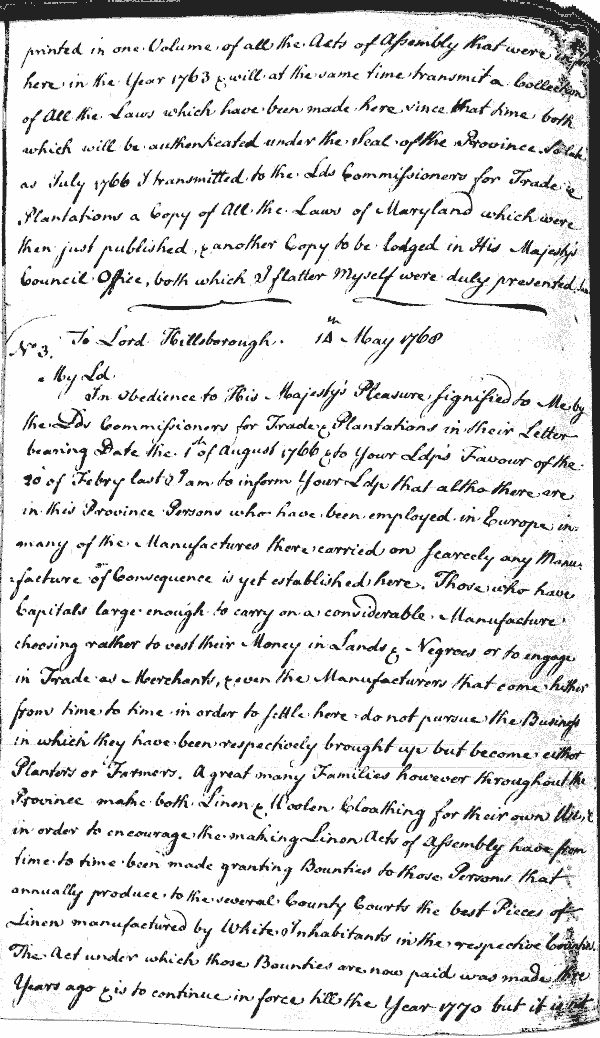 printed in one Volume of all the Acts of Assembly that were in force
here in the Year 1763 & will at the same time transmit a Collection
of All the Laws which have been made here since that time both
which will be authenticated under the Seal of the Province So late
as July 1766 I transmitted to the Lds Commissioners for Trade &
Plantations a Copy of All the Laws of Maryland which were
then just published, & another Copy to be lodged in His Majesty's
Council Office, both which I flatter Myself were duly presented.
No 3. To Lord Hillsborough. 14th May 1768
My Ld.
In obedience to His Majesty's Pleasure signified to Me by
the Lds Commissioners for Trade & Plantations in their Letter
bearing Date the 1st of August 1766 & to Your Ldp's Favour of the
20 of Febry last I am to inform Your Ldp that altho there are
in this Province Persons who have been employed in Europe in
many of the Manufactures there carried on scarcely any Manu-
facture of Consequence is yet established here. Those who have
Capitals large enough to carry on a considerable Manufacture
choosing rather to vest their Money in Lands & Negroes or to engage
in Trade as Merchants, & even the Manufacturers that come hither
from time to time in order to settle here do not pursue the Business
in which they have been respectively brought up but become either
Planters or Farmers. A great many Families however throughout the
Province make both Linen & Woolen Cloathing for their own Use, &
in order to encourage the making Linen Acts of Assembly have from
time to time been made granting Bounties to those Persons that
annually produce to the several County Courts the best Pieces of
Linen manufactured by White Inhabitants in the respective Counties.
The Act under which those Bounties are now paid was made three
Years ago & is to continue in force till the Year 1770 but it is not